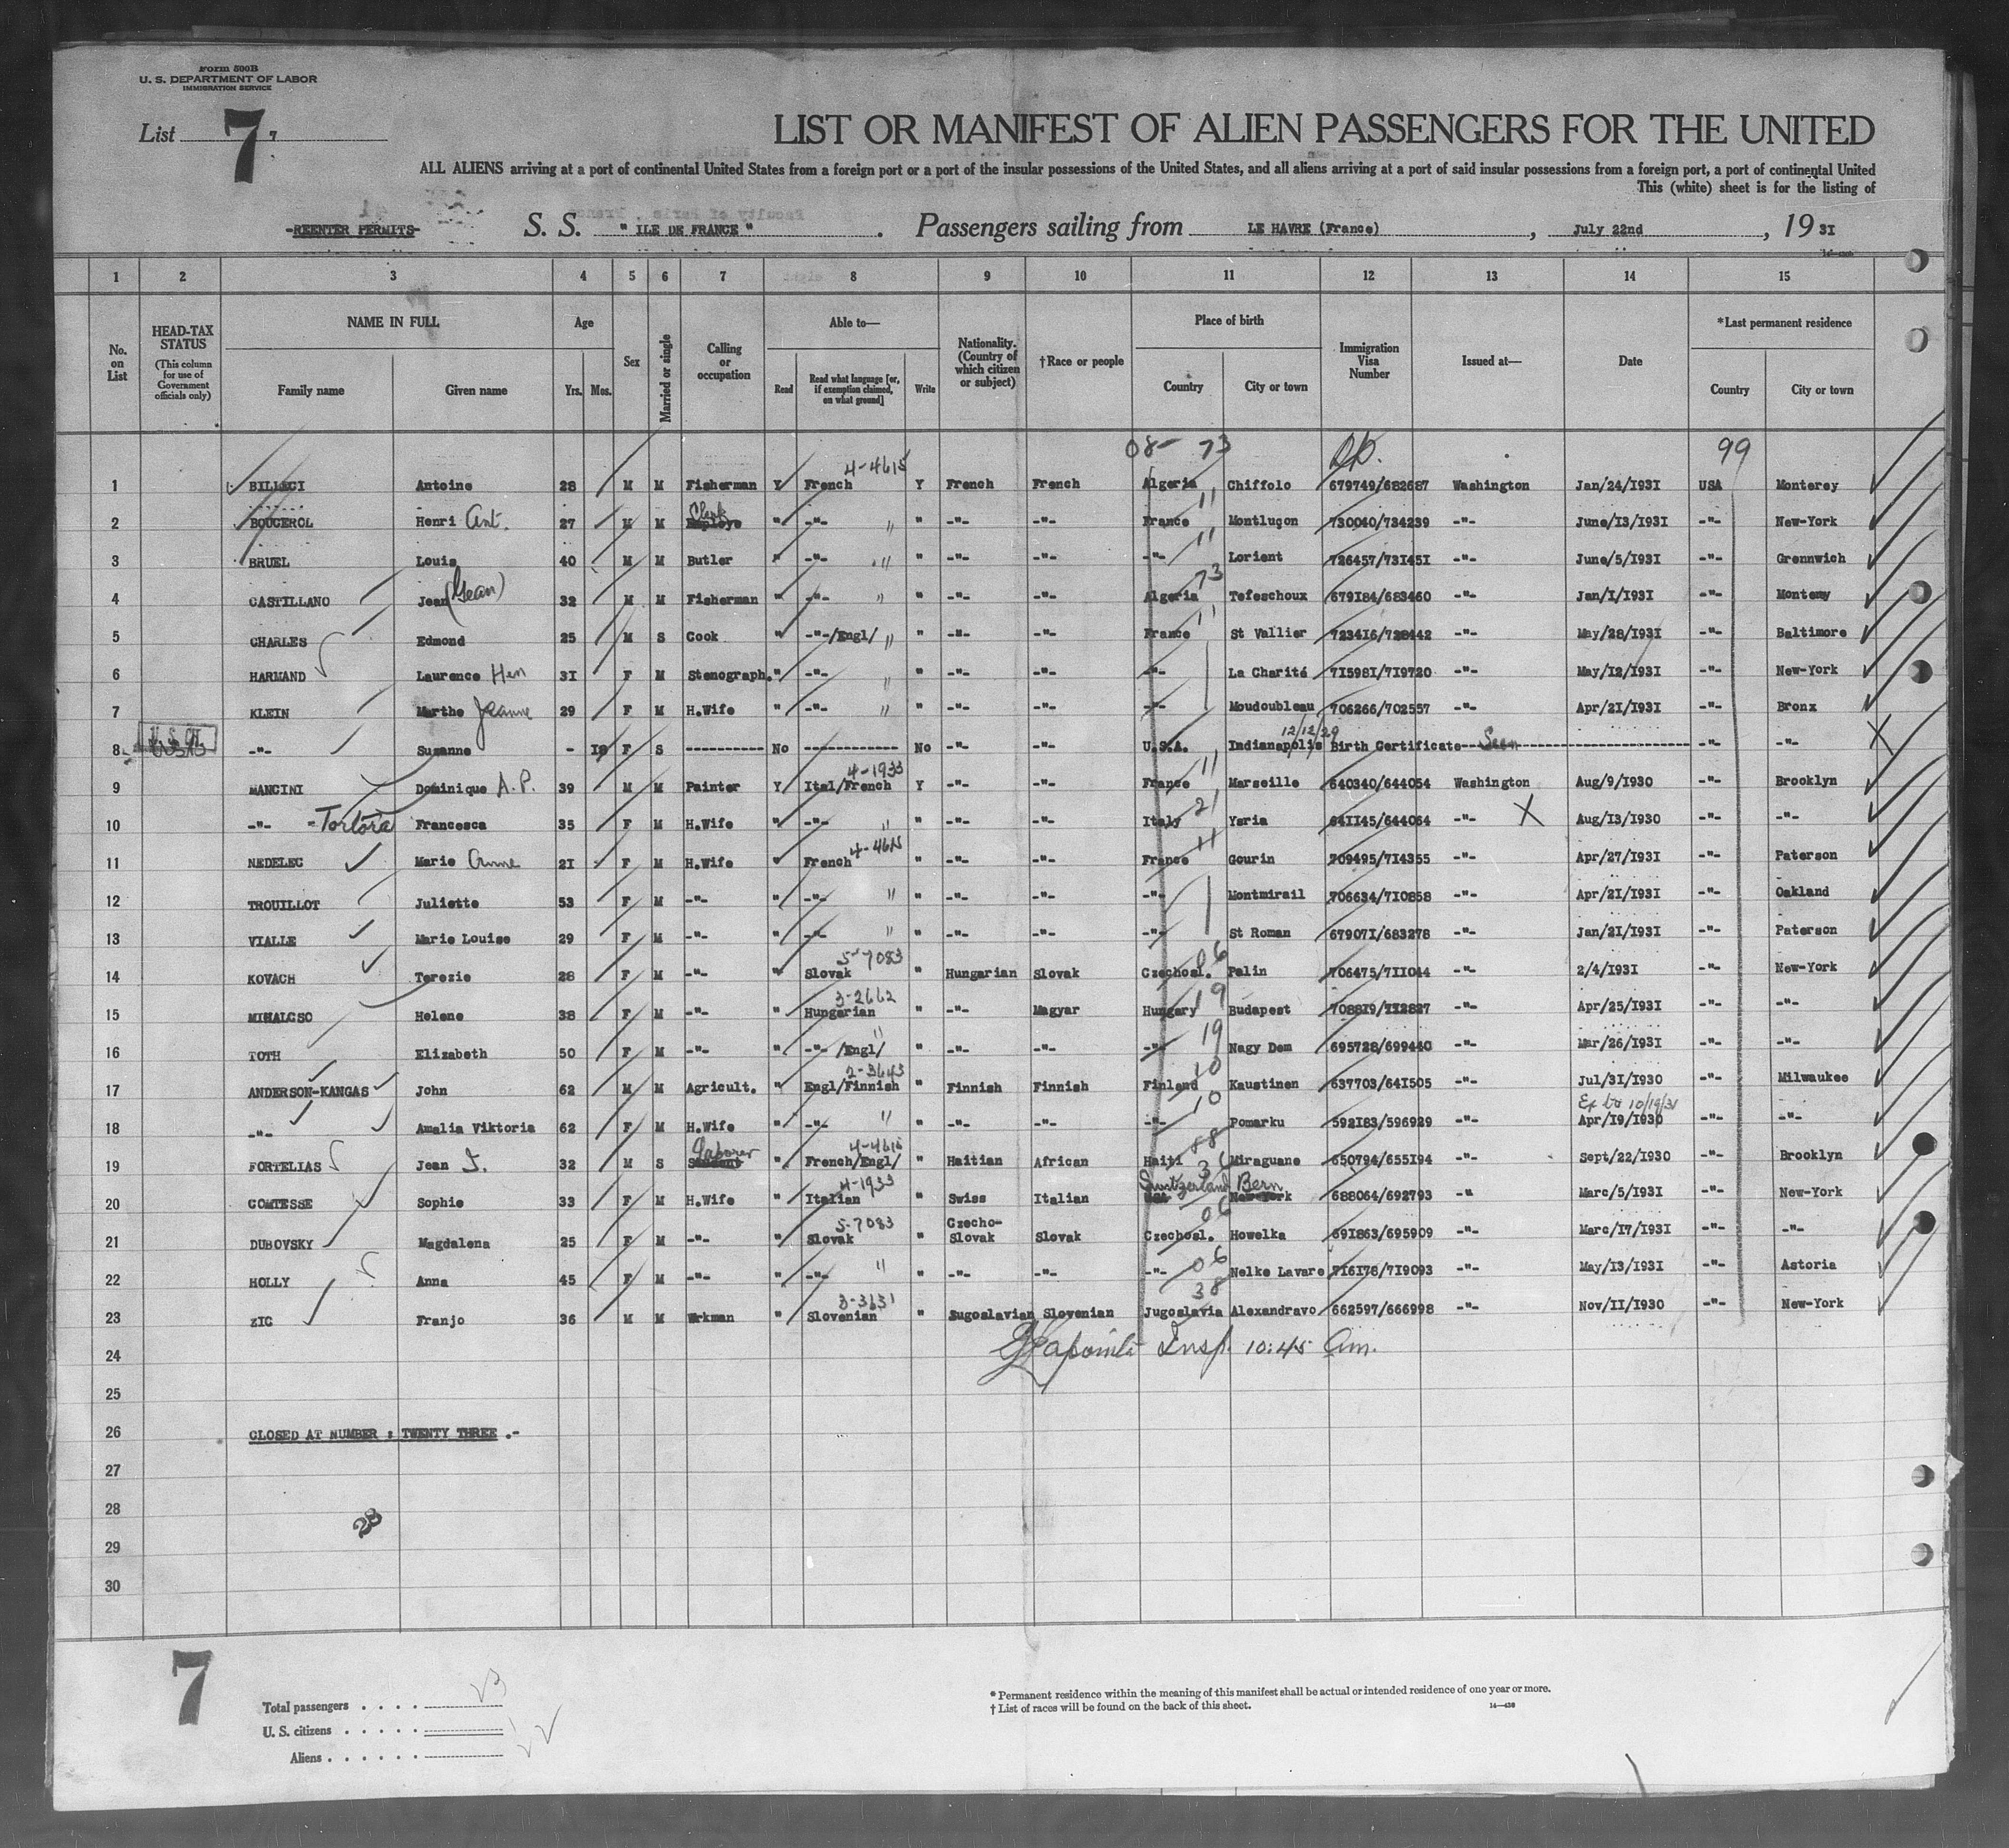 Form 500B
U. S. DEPARTMENT OF LABOR
IMMIGRATION SERVICE
List 7 7
LIST OR MANIFEST OF ALIEN PASSENGERS FOR THE UNITED
ALL ALIENS arriving at a port of continental United States from a foreign port or a port of the insular possessions of the United States, and all aliens arriving at a port of said insular possessions from a foreign port, a port of continental United
This (white) sheet is for the listing of
-REENTER PERMITS- S. S. " ILE DE FRANCE " . Passengers sailing from LE HAVRE (France) , July 22nd , 19 31
1 2 3 4 5 6 7 8 9 10 11 12 13 14 15
No. on List HEAD-TAX STATUS (This column for use of Government officials only) NAME IN FULL Family name Given name Age Yrs. Mos. Sex Married or single Calling or occupation Able to— Read Read what language [or, if exemption claimed, on what ground] Write Nationality. (Country of which citizen or subject) †Race or people Place of birth Country City or town Immigration Visa Number Issued at— Date *Last permanent residence Country City or town
08- 73 99
4-4615
1 BILLECI Antoine 28 M M Fisherman Y French Y French French Algeria Chiffolo 679749/682687 Washington Jan/24/1931 USA Monterey
Clerk 11
2 BOUGEROL Henri Ant. 27 M M Employe " -"- " " -"- -"- France Montluçon 730040/734239 -"- June/13/1931 -"- New-York
11
3 BRUEL Louis 40 M M Butler " -"- " " -"- -"- -"- Lorient 726457/731451 -"- June/5/1931 -"- Grennwich
73
4 CASTILLANO Jean (Gean) 32 M M Fisherman " -"- " " -"- -"- Algeria Tefeschoux 679184/683460 -"- Jan/1/1931 -"- Monterey
11
5 CHARLES Edmond 25 M S Cook " -"-/Engl/ " " -"- -"- France St Vallier 723416/728442 -"- May/28/1931 -"- Baltimore
6 HARMAND Laurence Hen 31 F M Stenograph. " -"- " " -"- -"- -"- La Charité 715981/719720 -"- May/12/1931 -"- New-York
7 KLEIN Marthe Jeanne 29 F M H.Wife " -"- " " -"- -"- -"- Moudoubleau 706266/702557 -"- Apr/21/1931 -"- Bronx
12/12/29
8 U.S. Cit. -"- Suzanne - 18 F S ---------- No ------------ No -"- -"- U.S.A. Indianapolis Birth Certificate-- Seen ---------- -"- -"-
4-1933 11
9 MANCINI Dominique A.P. 39 M M Painter Y Ital/French Y -"- -"- France Marseille 640340/644054 Washington Aug/9/1930 -"- Brooklyn
21
10 -"- -Tortora Francesca 35 F M H.Wife " -"- " " -"- -"- Italy Ysria 641145/644064 -"- X Aug/13/1930 -"- -"-
4-4615 11
11 NEDELEC Marie Anne 21 F M H.Wife " French " -"- -"- France Gourin 709495/714355 -"- Apr/27/1931 -"- Paterson
12 TROUILLOT Juliette 53 F M -"- " -"- " " -"- -"- -"- Montmirail 706634/710858 -"- Apr/21/1931 -"- Oakland
13 VIALLE Marie Louise 29 F M -"- " -"- " " -"- -"- -"- St Roman 679071/683278 -"- Jan/21/1931 -"- Paterson
5-7083 06
14 KOVACH Terezie 28 F M -"- " Slovak " Hungarian Slovak Czechosl. Palin 706475/711044 -"- 2/4/1931 -"- New-York
3-2662 19
15 MIHALCSO Helene 38 F M -"- " Hungarian " -"- Magyar Hungary Budapest 708819/712827 -"- Apr/25/1931 -"- -"-
" 19
16 TOTH Elizabeth 50 F M -"- " -"- /Engl/ " -"- -"- -"- Nagy Dem 695728/699440 -"- Mar/26/1931 -"- -"-
2-3643 10
17 ANDERSON-KANGAS John 62 M M Agricult. " Engl/Finnish " Finnish Finnish Finland Kaustinen 637703/641505 -"- Jul/31/1930 -"- Milwaukee
10 Ex to 10/19/31
18 -"- Amalia Viktoria 62 F M H.Wife " -"- " " -"- -"- -"- Pomarku 592183/596929 -"- Apr/19/1930 -"- -"-
Laborer 4-4615 88
19 FORTELIAS Jean J. 32 M S Student " French/Engl/ " Haitian African Haiti Miraguane 650794/655194 -"- Sept/22/1930 -"- Brooklyn
4-1933 36 Switzerland Bern
20 COMTESSE Sophie 33 F M H.Wife " Italian " Swiss Italian USA New-York 688064/692793 -" Marc/5/1931 -"- New-York
5-7083 06
21 DUBOVSKY Magdalena 25 F M -"- " Slovak " Czecho-Slovak Slovak Czechosl. Howelka 691863/695909 -"- Marc/17/1931 -"- -"-
" 06
22 HOLLY Anna 45 F M -"- " -"- " -"- -"- -"- Nelke Lavare 716178/719093 -"- May/13/1931 -"- Astoria
3-3631 38
23 ZIC Franjo 36 M M Wrkman " Slovenian " Sugoslavian Slovenian Jugoslavia Alexandravo 662597/666998 -"- Nov/11/1930 -"- New-York
24 Lapointe Insp. 10:45 am.
25
26 CLOSED AT NUMBER : TWENTY THREE .-
27
28 28
29
30
7
Total passengers . . . . 23
U. S. citizens . . . . . 1
Aliens . . . . . . 22
* Permanent residence within the meaning of this manifest shall be actual or intended residence of one year or more.
† List of races will be found on the back of this sheet. 14—428